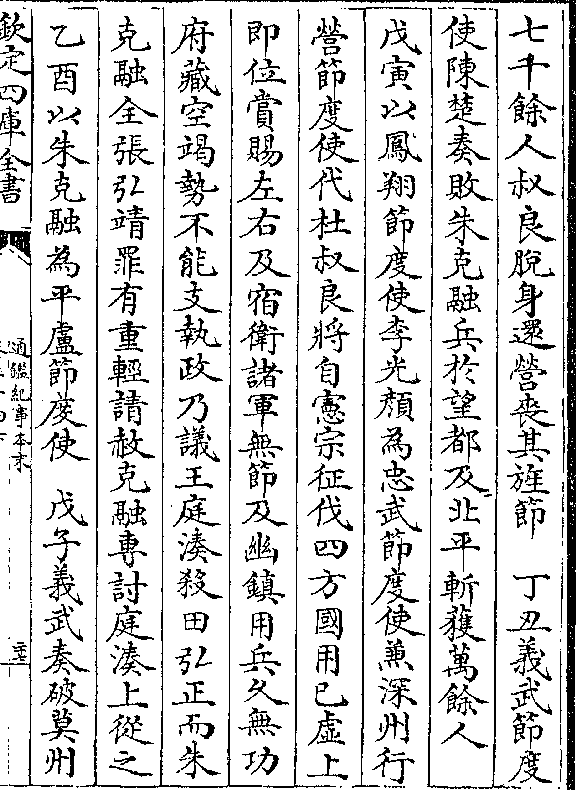 七千餘人叔良脫身還營喪其旌節　丁丑義武節度
使陳楚奏敗朱克融兵於望都及北平斬獲萬餘人
戊寅以鳳翔節度使李光顔為忠武節度使兼深州行
營節度使代杜叔良將自憲宗征伐四方國用已虛上
即位賞賜左右及宿衛諸軍無節及幽鎮用兵久無功
府藏空竭勢不能支執政乃議王庭湊殺田弘正而朱
克融全張弘靖罪有重輕請赦克融專討庭湊上從之
乙酉以朱克融為平盧節度使　戊子義武奏破莫州
欽定四庫全書
通鑑紀事本末